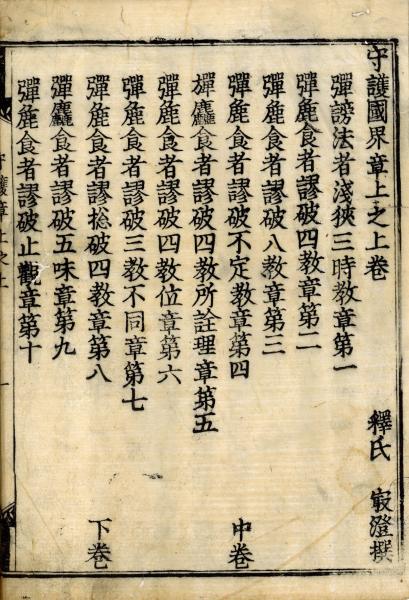 守護國界章上之上卷
釋氏 㝡澄撰
彈謗法者淺狹三時教章第一
彈麁食者謬破四教章第二
彈麁食者謬破八教章第三
彈麁食者謬破不定教章第四 中卷
彈麤食者謬破四教所詮理章第五
彈麁食者謬破四教位章第六
彈麁食者謬破三教不同章第七
彈麁食者謬捴破四教章第八 下卷
彈麤食者謬破五味章第九
彈麁食者謬破止觀章第十
守護章上之上 一